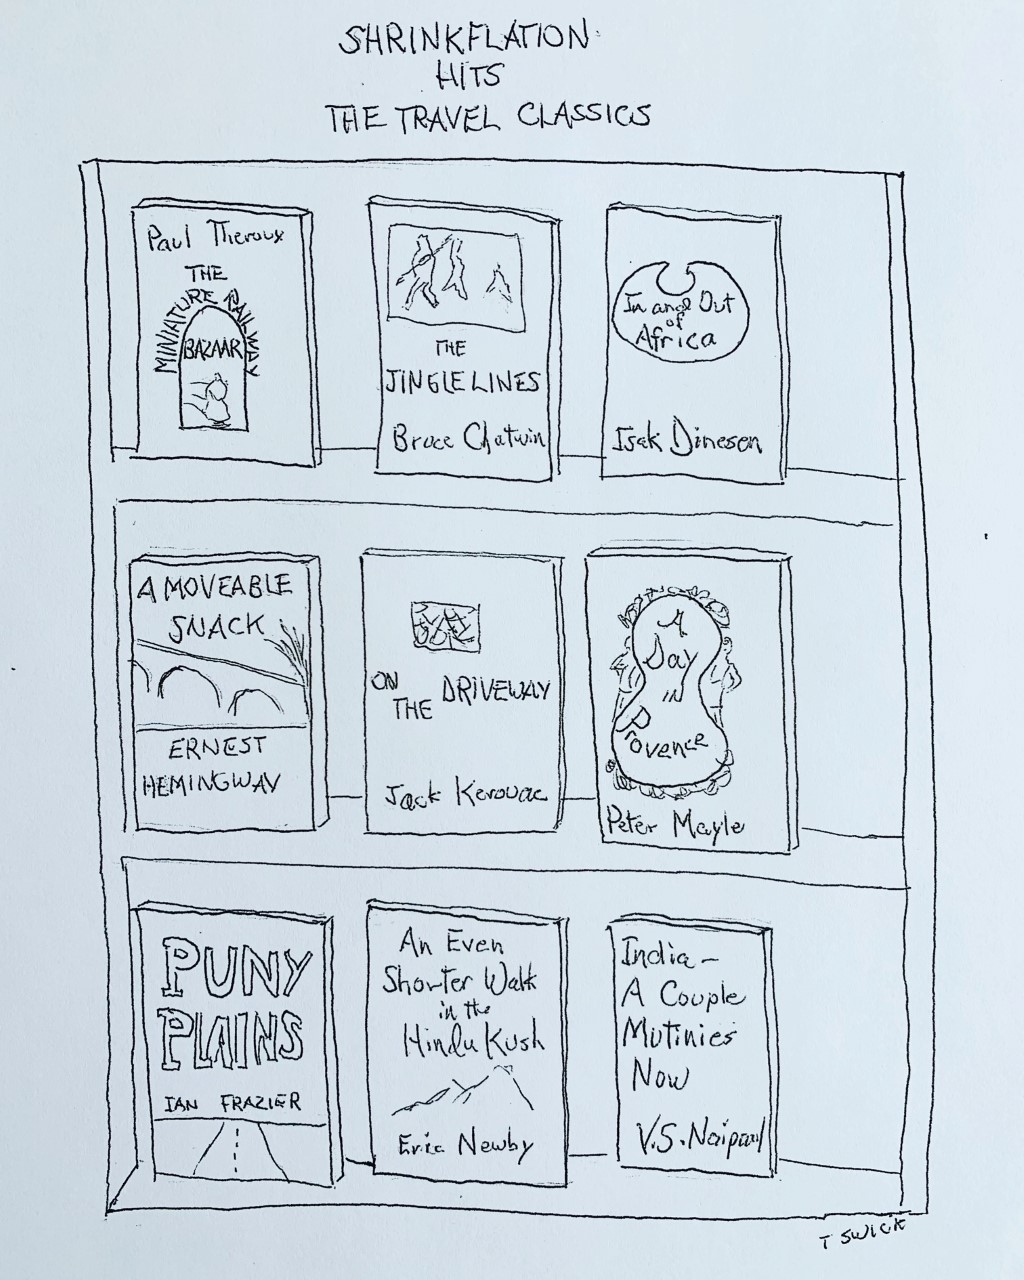 SHRINKFLATION
HITS
THE TRAVEL CLASSICS
Paul Theroux
THE
MINIATURE RAILWAY
BAZAAR
THE
JINGLELINES
Bruce Chatwin
In and Out
of
Africa
Isak Dinesen
A MOVEABLE
SNACK
ERNEST
HEMINGWAY
ON
THE DRIVEWAY
Jack Kerouac
A
Day
in
Provence
Peter Mayle
PUNY
PLAINS
IAN FRAZIER
An Even
Shorter Walk
in the
Hindu Kush
Eric Newby
India -
A Couple
Mutinies
Now
V.S. Naipaul
T SWICK